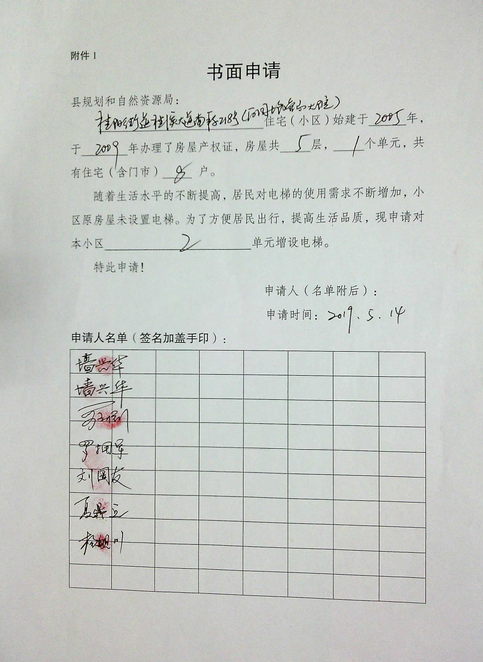 附件1
书面申请
县规划和自然资源局：
桂阳街道桂溪大道南段218号(住宅（小区）始建于2005年，
于2009年办理了房屋产权证，房屋共5层，1个单元，共
有住宅（含门市）8户。
随着生活水平的不断提高，居民对电梯的使用需求不断增加，小
区原房屋未设置电梯。为了方便居民出行，提高生活品质，现申请对
本小区2单元增设电梯。
特此申请！
申请人（名单附后）：
申请时间：2019.5.14
申请人名单（签名加盖手印）：
墙兴华
墙兴华
刘国友